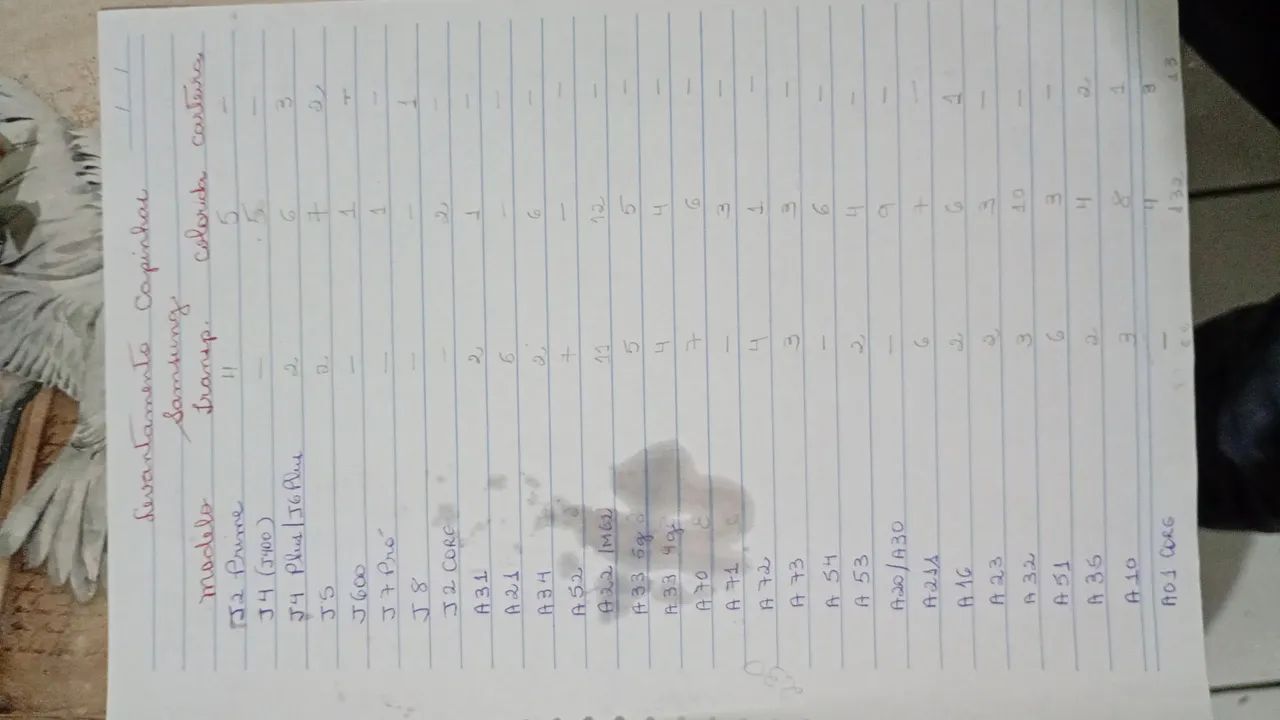 Levantamento Capinhas
Samsung
Modelo Transp. colorida carteira
J2 Prime 11 5 -
J4 (J400) - 5 -
J4 Plus/J6 Plus 2 6 3
J5 2 7 2
J600 - 1 -
J7 Pro - 1 -
J8 - - 1
J2 CORE - 2 -
A31 2 1 -
A21 6 - -
A34 2 6 -
A52 7 - -
A22/M62 11 12 -
A33 5g 5 5 -
A33 4g 4 4 -
A70 7 6 -
A71 - 3 -
A72 4 1 -
A73 3 3 -
A54 - 6 -
A53 2 4 -
A20/A30 - 9 -
A211 6 7 -
A16 2 6 1
A23 2 3 -
A32 3 10 -
A51 6 3 -
A35 2 4 2
A10 3 8 1
A01 CORE - 4 3
132 13